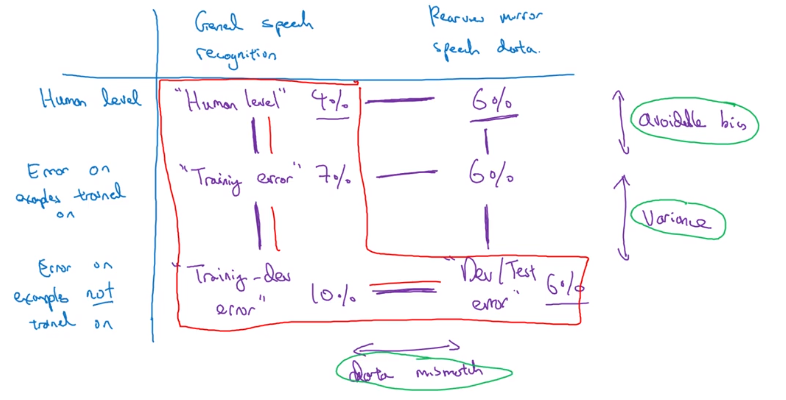 General speech recognition
Rearview mirror speech data.
Human level
"Human level" 4%
6%
avoidable bias
Error on examples trained on
"Training error" 7%
6%
Variance
Error on examples not trained on
"Training-dev error" 10%
"Dev/Test error" 6%
data mismatch